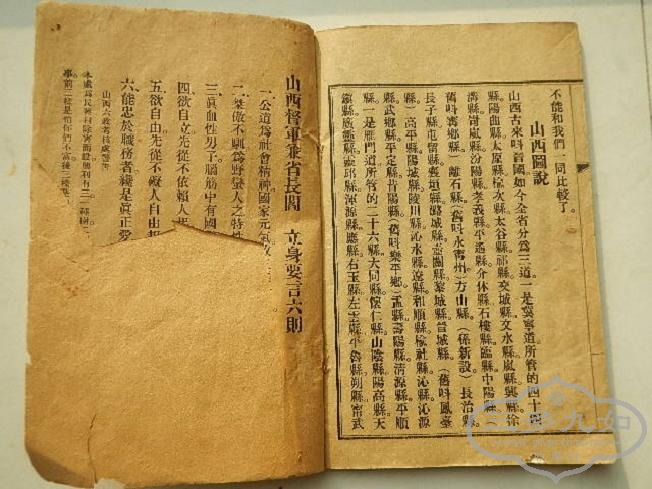 不能和我們一同比較了。
山西圖說
山西古來呌晉國。如今全省分爲三道。一是冀寧道。所管的四十四
縣。陽曲縣太原縣榆次縣。太谷縣祁縣。交城縣文水縣嵐縣。興縣徐
溝縣。岢嵐縣。汾陽縣孝義縣。平遙縣。介休縣石樓縣。臨縣。中陽縣。
(舊呌寧鄉縣)離石縣。(舊呌永寧州)方山縣。(係新設)長治縣。
長子縣。屯留縣。襄垣縣。潞城縣。壺關縣。黎城縣。晉城縣。(舊呌鳳臺
縣。)高平縣。陽城縣。陵川縣。沁水縣。遼縣。和順縣。榆社縣。沁縣。沁源
縣。武鄉縣。平定縣。昔陽縣。(舊呌樂平鄉)盂縣。壽陽縣。淸源縣。平順
縣。一是雁門道。所管的二十六縣。大同縣。懷仁縣。山陰縣陽高縣。天
鎭縣。廣靈縣。靈邱縣。渾源縣。應縣。右玉縣。左雲縣。平魯縣。朔縣。寧武
山西督軍兼省長閻 立身要言六則
一、公道爲社會精神國家元氣故
二、桀傲不馴爲野蠻人之特
三、眞血性男子腦筋中有國
四、欲自立先從不依賴人
五、欲自由先從不礙人自由起
六、能忠於職務者纔是眞正愛
山西六政考核處警告
本處爲民興利除害而設應利有二
事前三樣是怕你們不富後三樣是